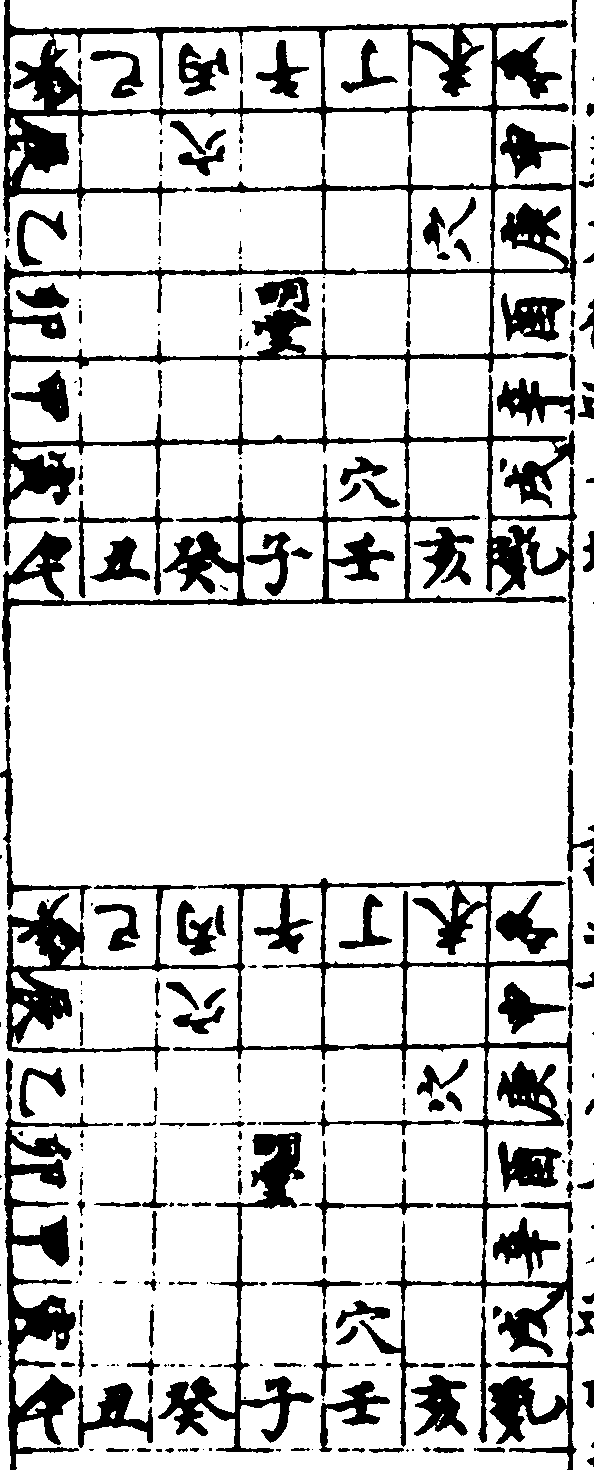 巽 巳 丙 午 丁 未 坤
辰 穴 申
乙 穴 庚
卯 明堂 酉
甲 辛
寅 穴 戌
艮 丑 癸 子 壬 亥 乾
巽 巳 丙 午 丁 未 坤
辰 穴 申
乙 穴 庚
卯 明堂 酉
甲 辛
寅 穴 戌
艮 丑 癸 子 壬 亥 乾